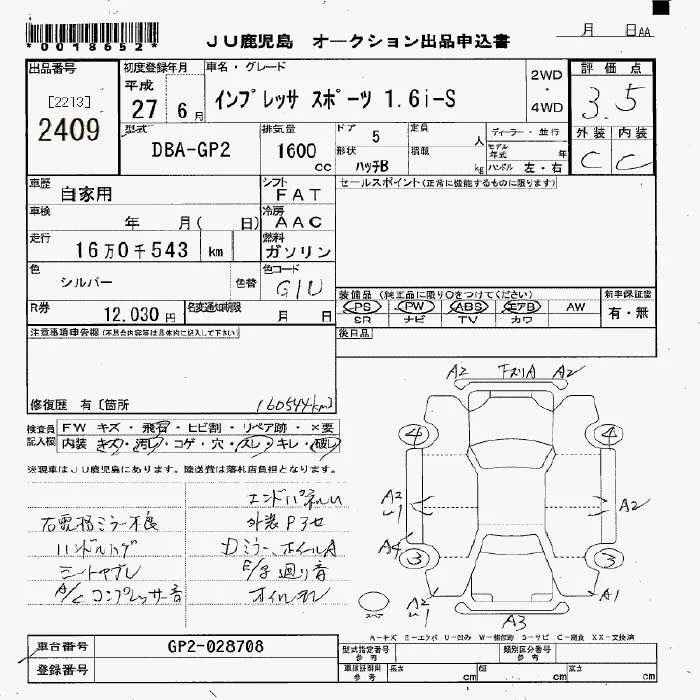 *0018652*
JU鹿児島 オークション出品申込書
月 日AA
出品番号
[2213]
2409
初度登録年月
平成
27 6月
車名・グレード
インプレッサ スポーツ 1.6i-S
2WD
・
4WD
評価点
3.5
外装 内装
C C
型式
DBA-GP2
排気量
1600
cc
ドア 5
形状 ハッチB
定員 人
積載 kg
ディーラー・並行
モデル年式 年
ハンドル 左・右
車歴
自家用
シフト
FAT
車検
年 月( 日)
冷房
AAC
走行
16万0千543 km
燃料
ガソリン
色
シルバー
色替
色コード
G1U
R券
12.030 円
名変通知期限
月 日
セールスポイント(正常に機能するものに限ります)
装備品(純正品に限り○をつけてください)
PS PW ABS エアB AW
SR ナビ TV カワ
新車保証書
有・無
後日品
注意事項申告欄(不具合内容等は具体的に記入して下さい)
修復歴 有〔箇所
(160544km)
検査員
記入欄
FW キズ・飛石・ヒビ割・リペア跡・×要
内装 キズ・汚レ・コゲ・穴・スレ・キレ・破レ
※現車はJU鹿児島にあります。陸送費は落札店負担となります。
右電格ミラー不良
ハンドル
A/Cコンプレッサー音
エンドパネル
外装
Dミラー、ホイールA
E/g廻り音
オイルモレ
A2 A2
4 4
A2
A2
A4
3 3
A2
A1
A3
スペア
A-キズ E-エクボ U-凹み W-補修跡 S-サビ C-腐食 XX-交換済
車台番号
GP2-028708
登録番号
型式指定番号
参考
類別区分番号
参考
車庫証明用
参考
長さ cm
幅 cm
高さ cm